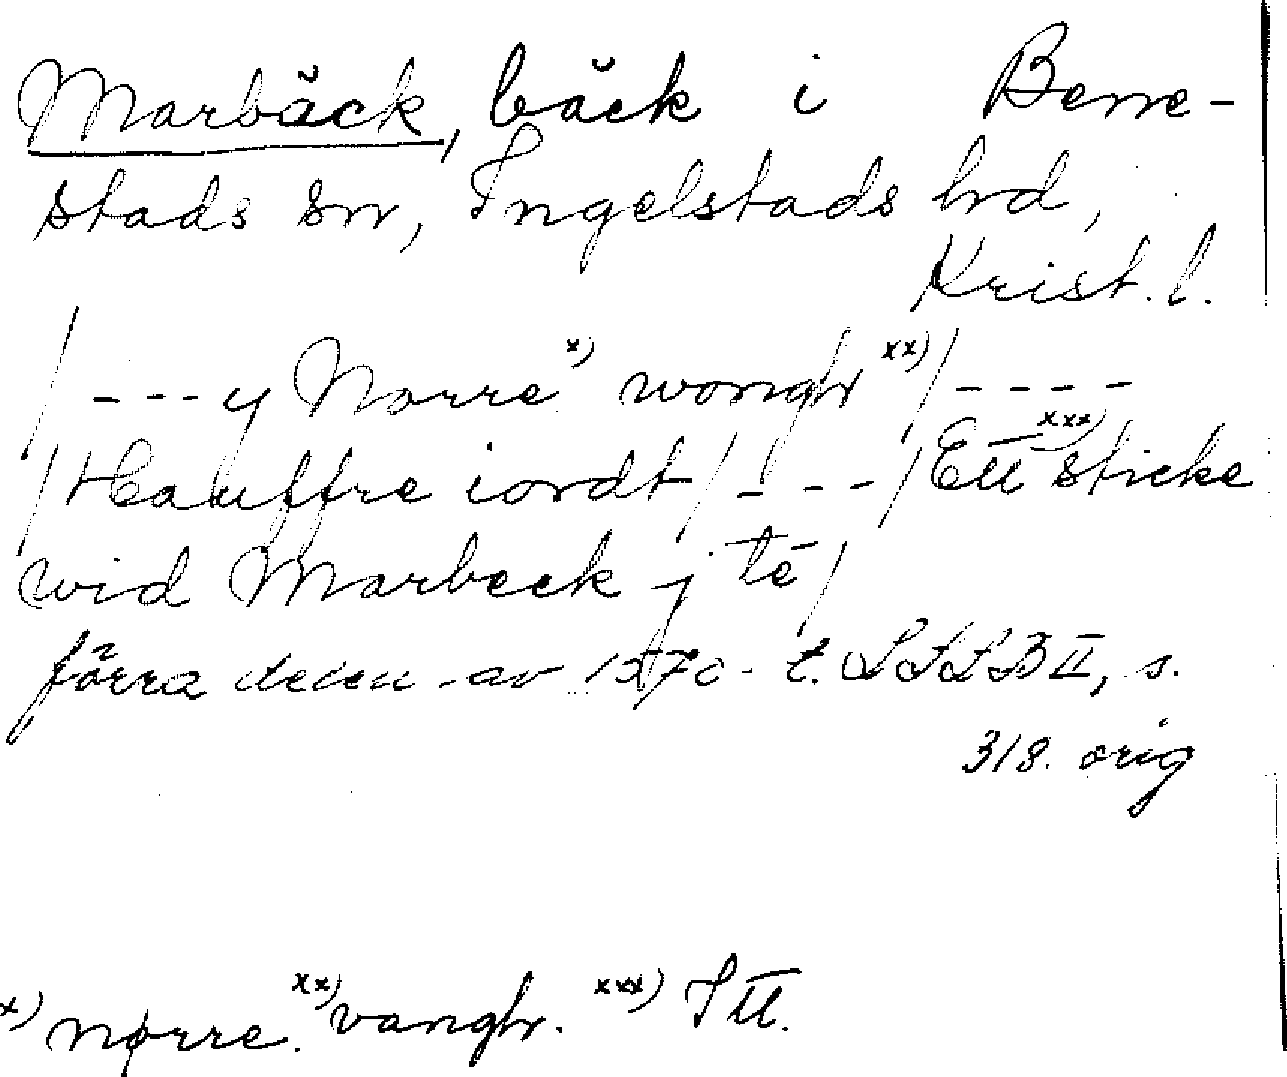 Marbäck, bäck i Berre-
stads sn, Ingelstads hrd,
Krist. l.
/---y Norre x) wongh xx)/----
/Hauffre iordt/----/Ett xxx) sticke
wid Marbeck j té/
förra delen av 1570- t. LSLB II, s.
318. orig
x) nørre. xx) vangh. xxx) Itt.